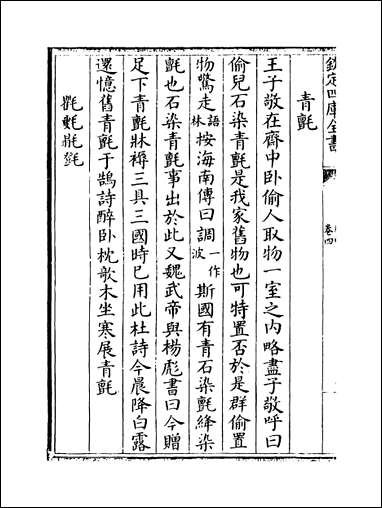 欽定四庫全書
卷四
青氈
王子敬在齋中卧偷人取物一室之內略盡子敬呼曰
偷兒石染青氈是我家舊物也可特置否於是群偷置
物驚走語林按海南傳曰調一作波斯國有青石染氈絳染
氈也石染青氈事出於此又魏武帝與楊彪書曰今贈
足下青氈牀褥三具三國時已用此杜詩今晨降白露
還憶舊青氈于鵠詩醉卧枕欹木坐寒展青氈